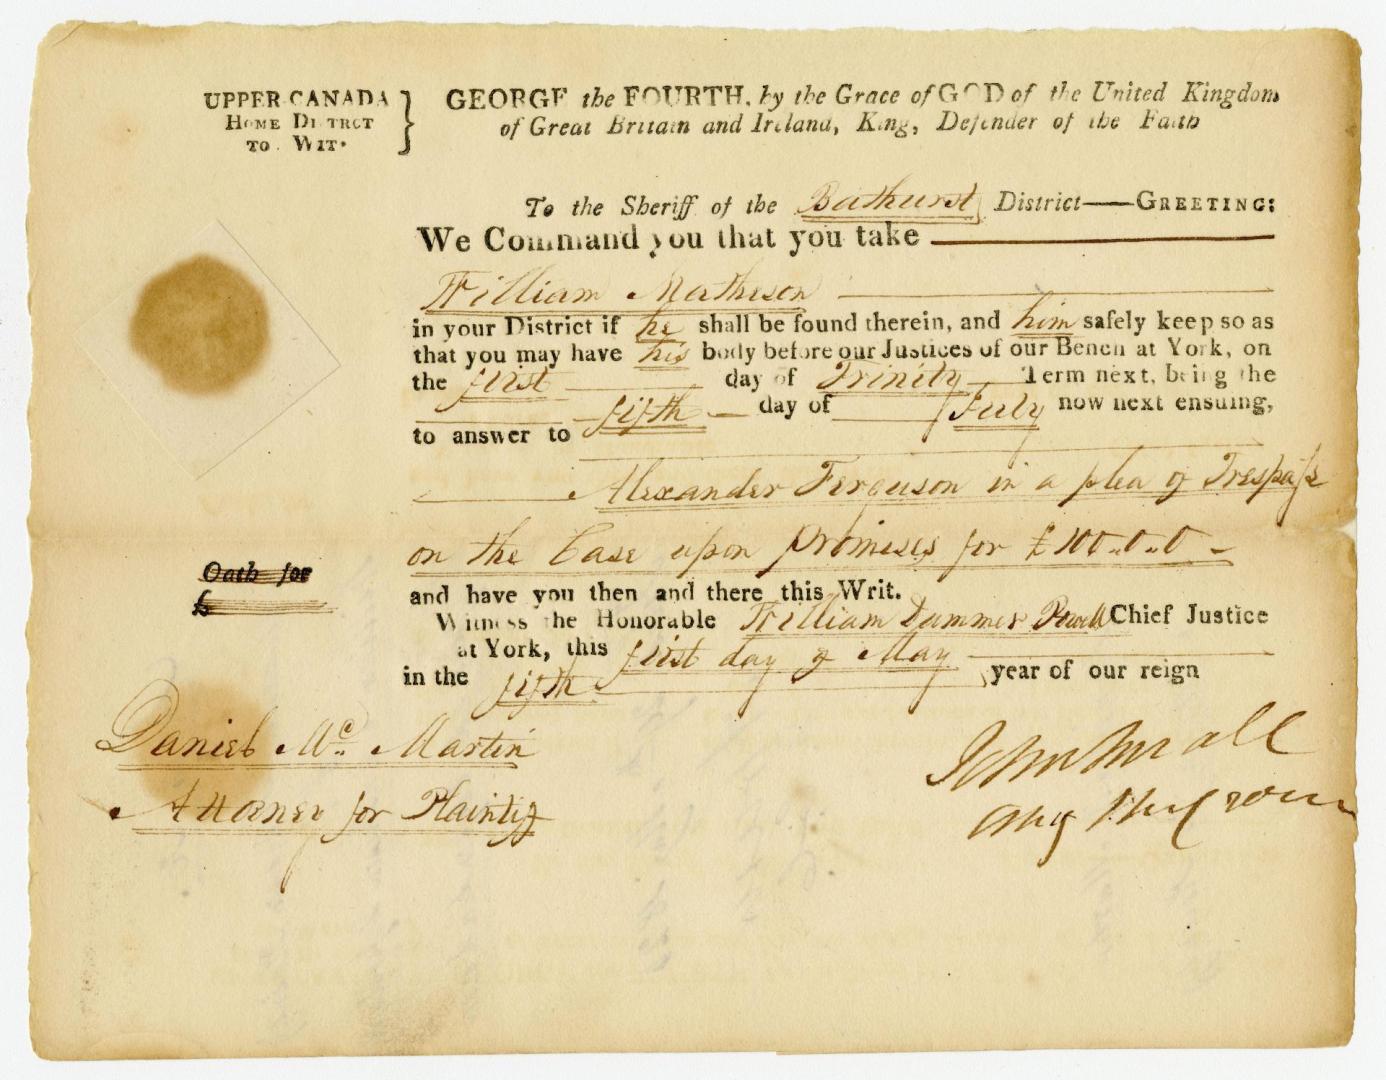 UPPER CANADA
HOME DISTRCT
TO WIT.
GEORGE the FOURTH, by the Grace of GOD of the United Kingdom
of Great Britain and Ireland, King, Defender of the Faith
To the Sheriff of the Bathurst District—GREETING:
We Command you that you take
William Matheson
in your District if he shall be found therein, and him safely keep so as
that you may have his body before our Justices of our Bench at York, on
the first day of Trinity Term next, being the
fifth day of July now next ensuing,
to answer to
Alexander Ferguson in a plea of Trespass
on the Case upon promises for £100..0..0
and have you then and there this Writ.
Witness the Honorable William Dummer Powell Chief Justice
at York, this first day of May
in the fifth year of our reign
Oath for
£
Daniel Mc Martin
Attorney for Plaintiff
John Small